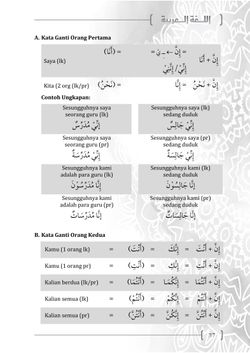 اللغة العربية
A. Kata Ganti Orang Pertama
Saya (lk) = (أَنَا) = إِنَّ + أَنَا
إِنِّيْ / إِنَّنِيْ
Kita (2 org (lk/pr) = (نَحْنُ) = إِنَّا = إِنَّ + نَحْنُ
Contoh Ungkapan:
Sesungguhnya saya seorang guru (lk)
إِنِّيْ مُدَرِّسٌ
Sesungguhnya saya (lk) sedang duduk
إِنِّيْ جَالِسٌ
Sesungguhnya saya seorang guru (pr)
إِنِّيْ مُدَرِّسَةٌ
Sesungguhnya saya (pr) sedang duduk
إِنِّيْ جَالِسَةٌ
Sesungguhnya kami adalah para guru (lk)
إِنَّا مُدَرِّسُوْنَ
Sesungguhnya kami (lk) sedang duduk
إِنَّا جَالِسُوْنَ
Sesungguhnya kami adalah para guru (pr)
إِنَّا مُدَرِّسَاتٌ
Sesungguhnya kami (pr) sedang duduk
إِنَّا جَالِسَاتٌ
B. Kata Ganti Orang Kedua
Kamu (1 orang lk) = (أَنْتَ) = إِنَّكَ = إِنَّ + أَنْتَ
Kamu (1 orang pr) = (أَنْتِ) = إِنَّكِ = إِنَّ + أَنْتِ
Kalian berdua (lk/pr) = (أَنْتُمَا) = إِنَّكُمَا = إِنَّ + أَنْتُمَا
Kalian semua (lk) = (أَنْتُمْ) = إِنَّكُمْ = إِنَّ + أَنْتُمْ
Kalian semua (pr) = (أَنْتُنَّ) = إِنَّكُنَّ = إِنَّ + أَنْتُنَّ